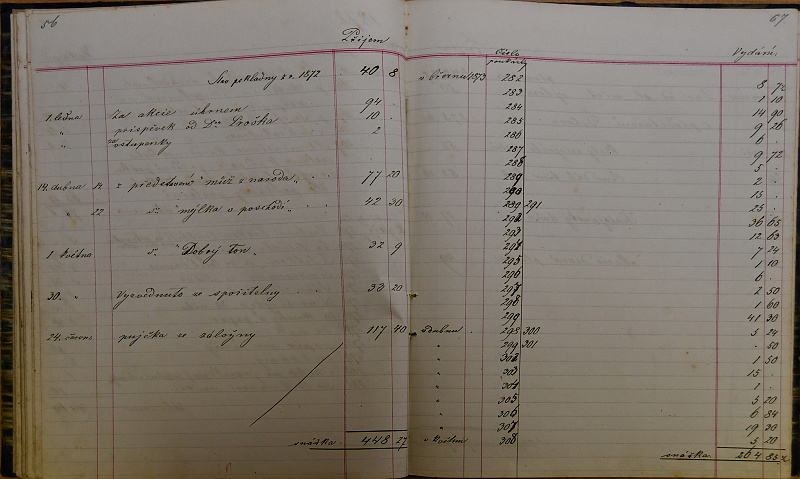 56
Příjem
Stav pokladny z r. 1872 40 8
1. ledna Za akcie úhrnem 94 .
" příspěvek od Dra Proška 10 .
" za vstupenky 2 .
14. dubna 14 z představení "múž z národa" 77 20
" 22 dto "mýlka v poschodí" 42 30
1 května dto "Dobrý ton" 32 9
30. " Vyzvednuto ze spořitelny 33 20
24. června půjčka ze záložny 117 40
snáška 448 27
67
Číslo poukázky
Vydání
v březnu 1873 282 8 72
283 1 10
284 14 90
285 9 26
286 6 .
287 9 72
288 5 .
289 2 .
15 .
291 25 .
292 36 65
293 12 63
294 7 24
295 1 10
296 6 .
297 2 50
298 1 60
299 41 30
v dubnu 300 5 24
" 301 . 50
" 302 1 50
" 303 15 .
" 304 1 .
" 305 5 20
" 306 6 84
" 307 19 30
v květnu 308 5 20
snáška